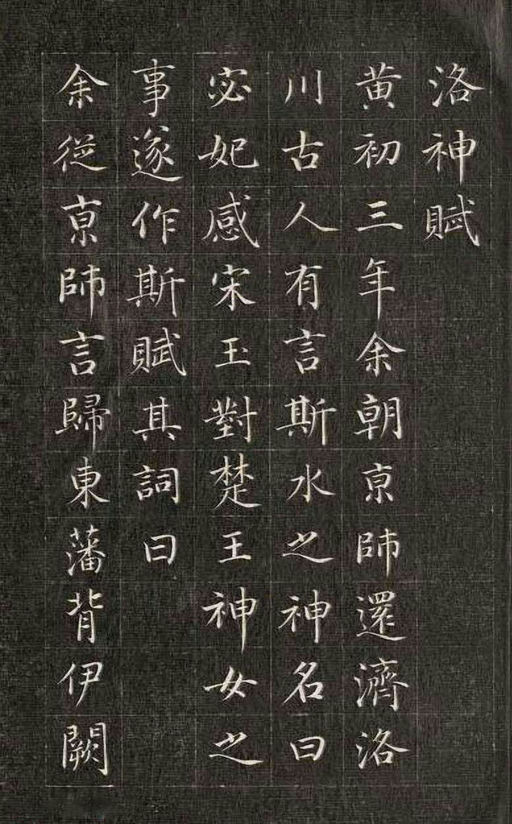 洛神賦
黄初三年余朝亰師還濟洛
川古人有言斯水之神名曰
宓妃感宋玉對楚王神女之
事遂作斯賦其詞曰
余從亰師言歸東藩背伊闕